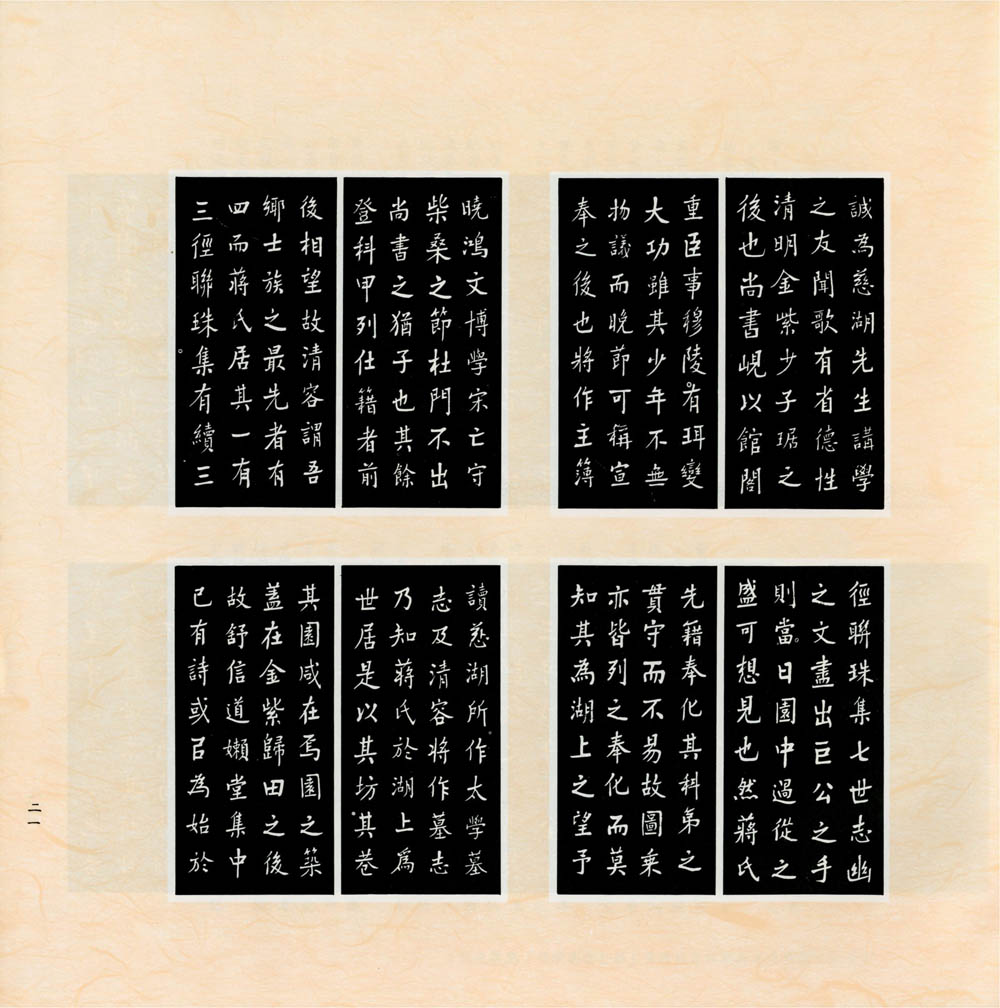 誠為慈湖先生講學
之友聞歌有省德性
清明金紫少子琚之
後也尚書峴以館閣
重臣事穆陵有珥變
大功雖其少年不無
物議而晚節可稱宣
奉之後也將作主簿
曉鴻文博學宋亡守
柴桑之節杜門不出
尚書之猶子也其餘
登科甲列仕籍者前
後相望故清容謂吾
鄉士族之最先者有
四而蔣氏居其一有
三徑聯珠集有續三
徑聯珠集七世志幽
之文盡出巨公之手
則當日園中過從之
盛可想見也然蔣氏
先籍奉化其科第之
貫守而不易故圖乘
亦皆列之奉化而莫
知其為湖上之望予
讀慈湖所作太學墓
志及清容將作墓志
乃知蔣氏於湖上為
世居是以其坊其巷
其園咸在焉園之築
蓋在金紫歸田之後
故舒信道嬾堂集中
已有詩或吕為始於
二一